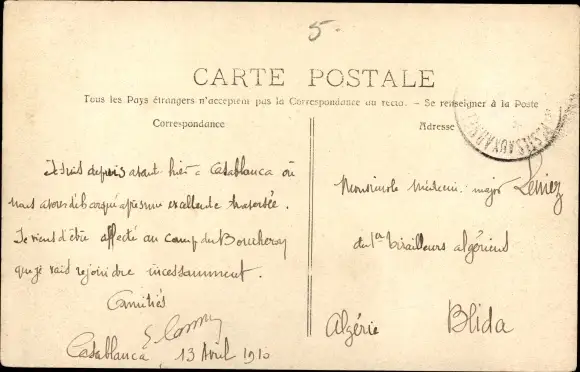 5.
CARTE POSTALE
Tous les Pays étrangers n'acceptent pas la Correspondance au recto. - Se renseigner à la Poste
Correspondance
Je suis depuis avant hier à Casablanca où
nous avons débarqué après une excellente traversée.
Je viens d'être affecté au camp du Boucheron
que je vais rejoindre incessamment.
Amitiés
Casablanca 13 Avril 1910
Adresse
Monsieur le Médecin major
du 1er tirailleurs algériens
Blida
Algérie